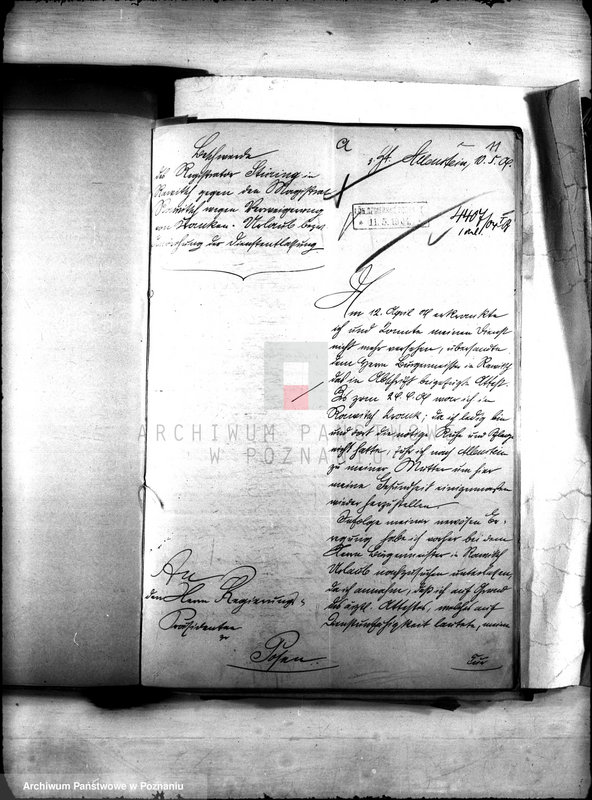 Beschwerde
des Registrator Stiring in
Rawitsch gegen den Magistrat
Rawitsch wegen Verweigerung
von Kranken-Urlaub bezw.
der Dienstentlassung
a
z. Zt. Allenstein, 10. 5. 04.
11
11.5.1904
4407/04
Am 12. April 04 erkrankte
ich und konnte meinen Dienst
nicht mehr versehen, übersandte
dem Herrn Bürgermeister in Rawitsch
das in Abschrift beigefügte Attest.
Bis zum 24.4.04 war ich in
Rawitsch krank; da ich ledig bin
und dort die nötige Ruhe und Pflege
nicht hatte, fuhr ich nach Allenstein
zu meiner Mutter um hier
meine Gesundheit einigermaßen
wieder herzustellen.
Infolge meiner nervösen Er-
regung habe ich vorher bei dem
Herrn Bürgermeister in Rawitsch
Urlaub nachzusuchen unterlassen,
da ich annahm, daß ich auf Grund
des ärztl. Attestes, welches auf
Dienstunfähigkeit lautete, meine
An
den Herrn Regierungs-
Präsidenten
Posen.
ARCHIWUM PAŃSTWOWE
W POZNANIU
Archiwum Państwowe w Poznaniu